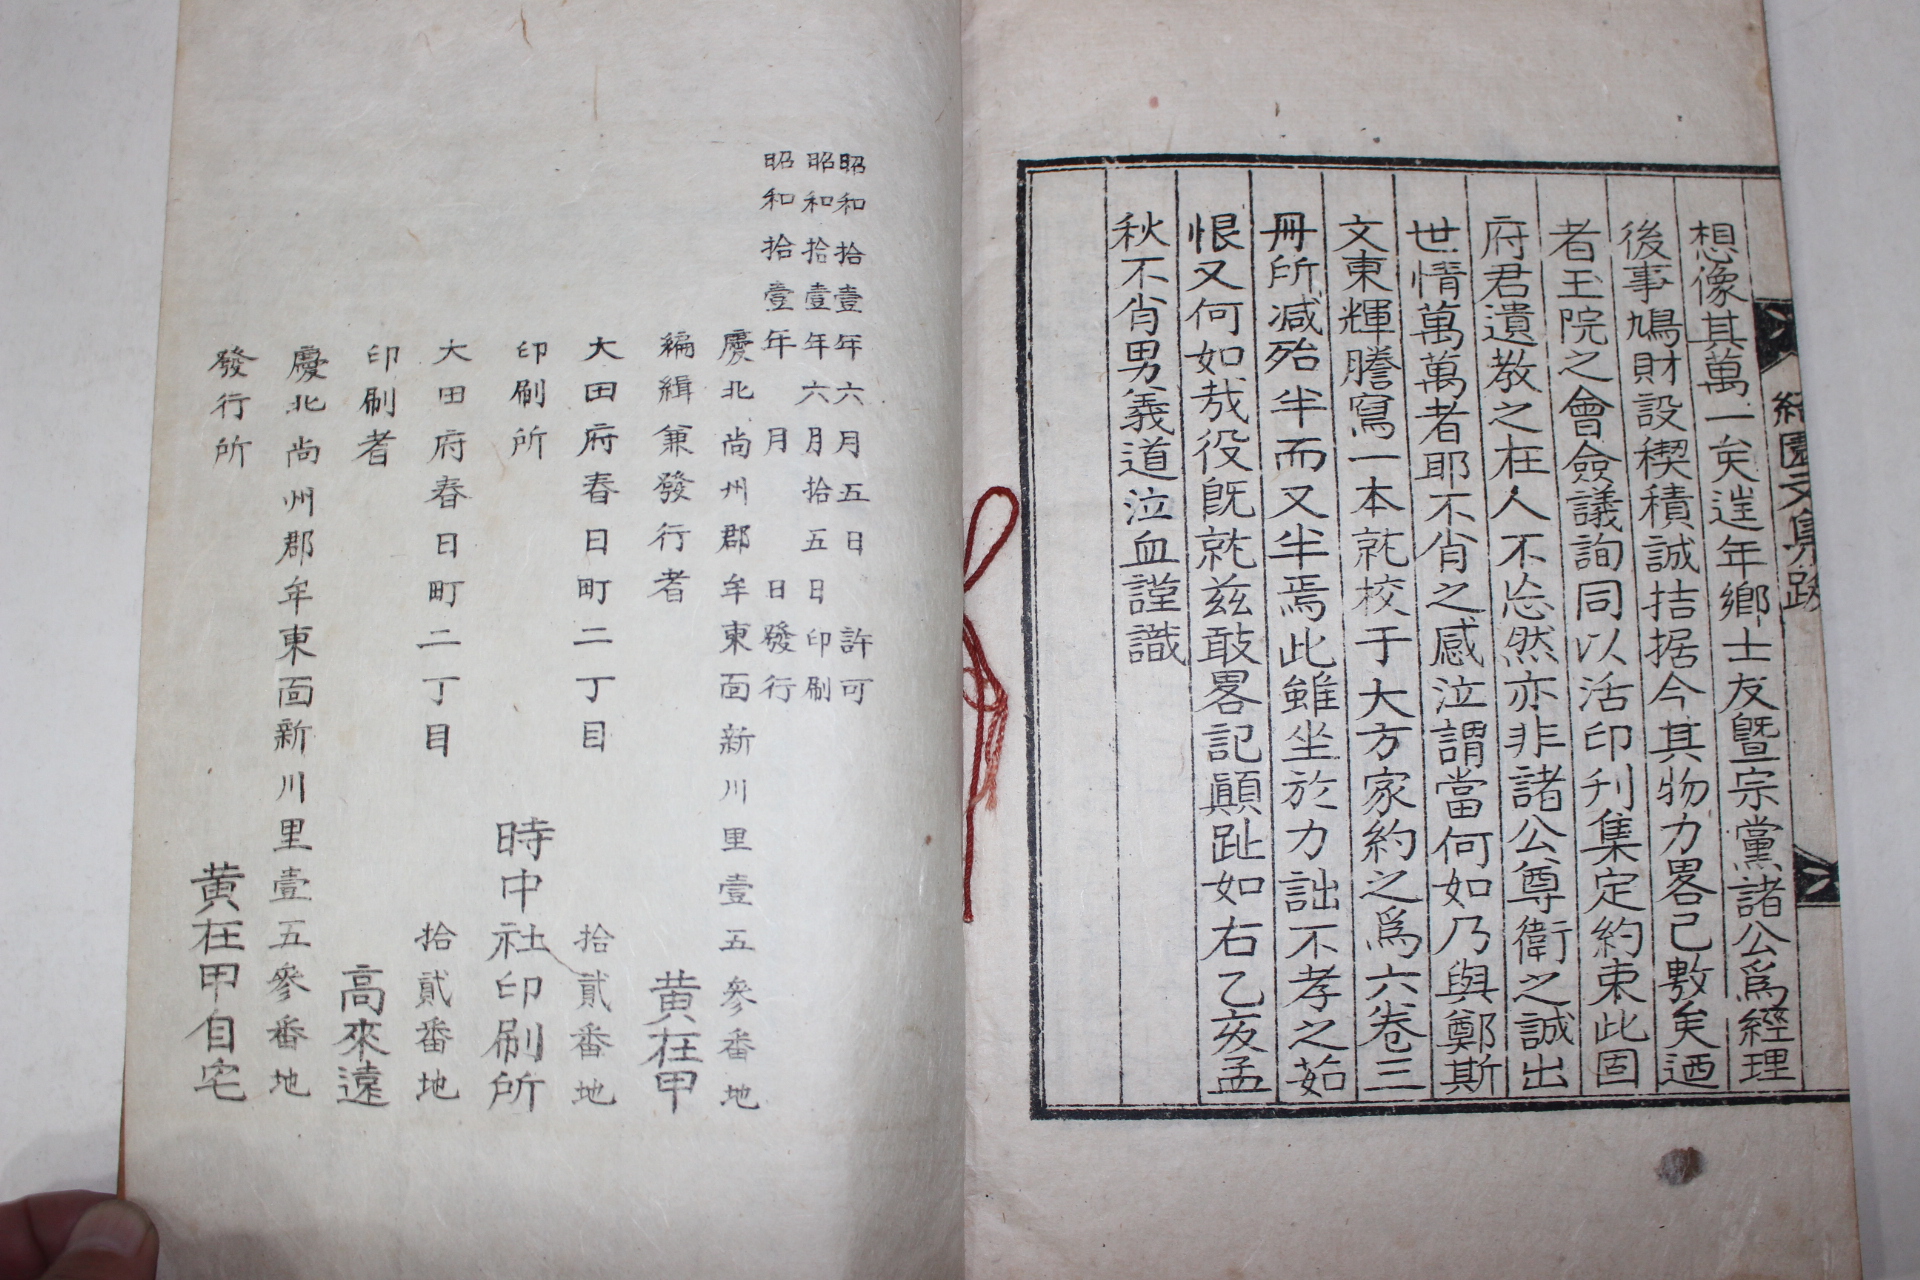 想像其萬一矣逆年鄉士友曁宗黨諸公爲經理
後事鳩財設稧積誠拮据今其物力畧已敷矣迺
者玉院之會僉議詢同以活印刋集定約束此固
府君遺敎之在人不忘然亦非諸公尊衛之誠出
世情萬萬者耶不肖之感泣謂當何如乃與鄭斯
文東輝謄寫一本就校于大方家約之爲六卷三
冊所减殆半而又半焉此雖坐於力詘不孝之茹
恨又何如哉役旣就玆敢畧記顚趾如右乙亥孟
秋不肖男義道泣血謹識
園文集跋
昭和拾壹年六月五日許可
昭和拾壹年六月拾五日印刷
昭和拾壹年 月 日發行
慶北尙州郡牟東面新川里壹五參番地
編緝兼發行者 黄在甲
大田府春日町二丁目 拾貳番地
印刷所 時中社印刷所
大田府春日町二丁目 拾貳番地
印刷者 高來遠
慶北尙州郡牟東面新川里壹五參番地
發行所 黄在甲自宅